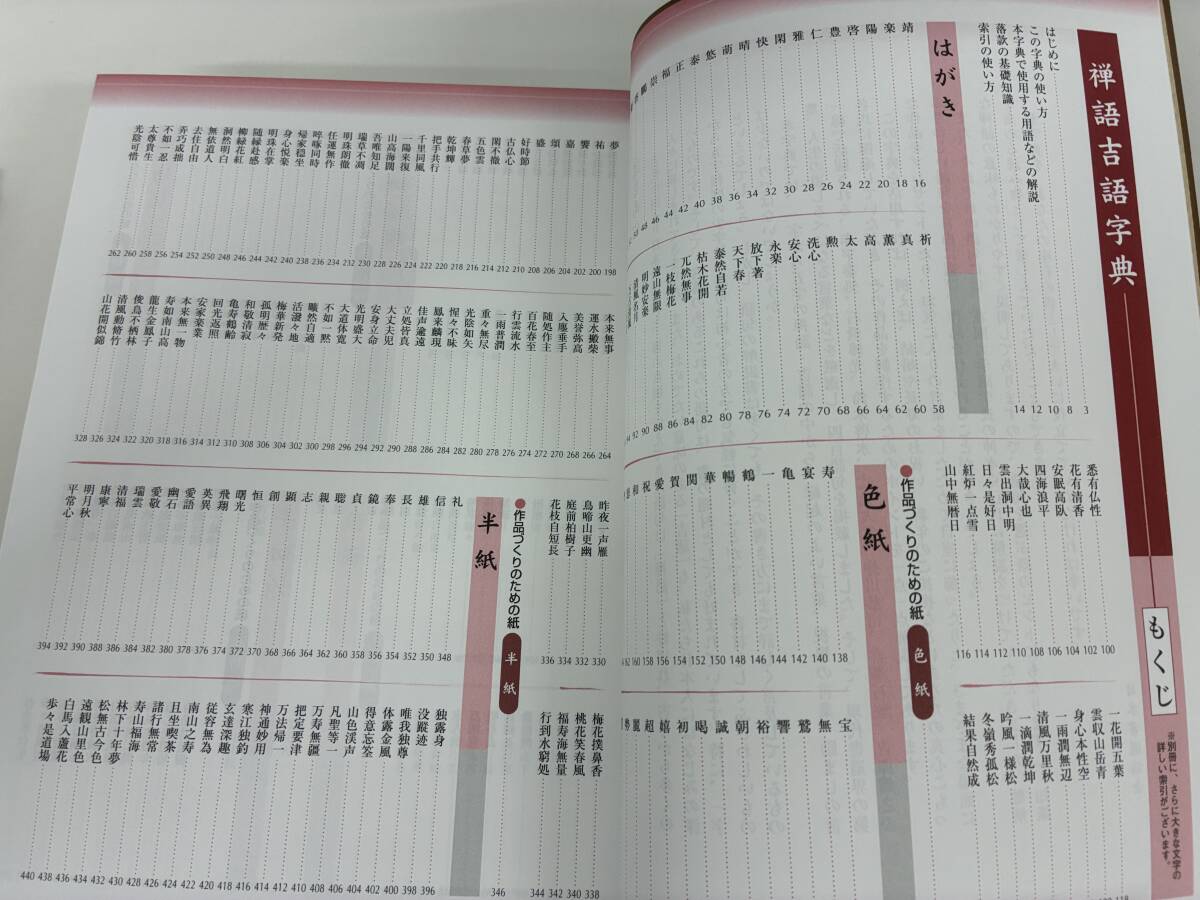 禅語吉語字典
もくじ
※別冊に、さらに大きな文字の
詳しい索引がございます。
はじめに 3
この字典の使い方 8
本字典で使用する用語などの解説 10
落款の基礎知識 12
索引の使い方 14
はがき
靖 16
楽 18
陽 20
啓 22
豊 24
仁 26
雅 28
閑 30
快 32
晴 34
萠 36
悠 38
泰 40
正 42
福 44
崇 46
鵬 48
祈 58
真 60
薫 62
高 64
太 66
勲 68
洗心 70
安心 72
永楽 74
放下著 76
天下春 78
泰然自若 80
枯木花開 82
兀然無事 84
一枝梅花 86
遠山無限 88
明妙安楽 90
清風名月 92
悉有仏性 100
花有清香 102
安眠高臥 104
四海浪平 106
大哉心也 108
雲出洞中明 110
日々是好日 112
紅炉一点雪 114
山中無暦日 116
一花開五葉
雲収山岳青
身心本性空
一雨潤無辺
清風万里秋
一滴潤乾坤
吟風一様松
冬嶺秀孤松
結果自然成
●作品づくりのための紙
色紙
色紙
寿 138
宴 140
亀 142
一 144
鶴 146
暢 148
華 150
関 152
賀 154
愛 156
祝 158
和 160
宝
無
鷲
響
裕
朝
誠
喝
初
嬉
超
麗
夢 198
祐 200
響 202
嘉 204
頌 206
盛 208
好時節 210
古仏心 212
閑不徹 214
五色雲 216
春草夢 218
乾坤輝 220
把手共行 222
千里同風 224
一陽来復 226
山高海闊 228
吾唯知足 230
瑞草不凋 232
明珠朗徹 234
任運無作 236
啐啄同時 238
帰家穏坐 240
身心悦楽 242
明珠在掌 244
随縁赴感 246
柳緑花紅 248
洞然明白 250
無依道人 252
去住自由 254
弄巧成拙 256
不如一忍 258
太尊貴生 260
光陰可惜 262
本来無事 264
運水搬柴 266
美誉弥高 268
入鄽垂手 270
随処作主 272
百花春至 274
行雲流水 276
一雨普潤 278
重々無尽 280
光陰如矢 282
惺々不昧 284
鳳来麟現 286
佳声逾遠 288
立処皆真 290
大丈夫児 292
安身立命 294
光明盛大 296
大道体寛 298
不如一黙 300
曠然自適 302
活潑々地 304
梅華新発 306
孤明歴々 308
和敬清寂 310
亀寿鶴齢 312
回光返照 314
安家楽業 316
本来無一物 318
寿如南山高 320
龍生金鳳子 322
俊鳥不栖林 324
清風動脩竹 326
山花開似錦 328
昨夜一声雁 330
鳥啼山更幽 332
庭前柏樹子 334
花枝自短長 336
梅花撲鼻香 338
桃花笑春風 340
福寿海無量 342
行到水窮処 344
●作品づくりのための紙
半紙 346
半紙
礼 348
信 350
雄 352
長 354
奉 356
鏡 358
貞 360
聡 362
親 364
志 366
顕 368
創 370
恒 372
曙光 374
飛翔 376
英異 378
愛語 380
幽石 382
愛敬 384
瑞雲 386
清福 388
康寧 390
明月秋 392
平常心 394
独露身 396
没蹤迹 398
唯我独尊 400
体露金風 402
得意忘筌 404
山色渓声 406
凡聖等一 408
万寿無疆 410
把定要津 412
万法帰一 414
神通妙用 416
寒江独釣 418
玄達深趣 420
従容無為 422
南山之寿 424
且坐喫茶 426
諸行無常 428
寿山福海 430
林下十年夢 432
松無古今色 434
遠観山里色 436
白馬入蘆花 438
歩々是道場 440